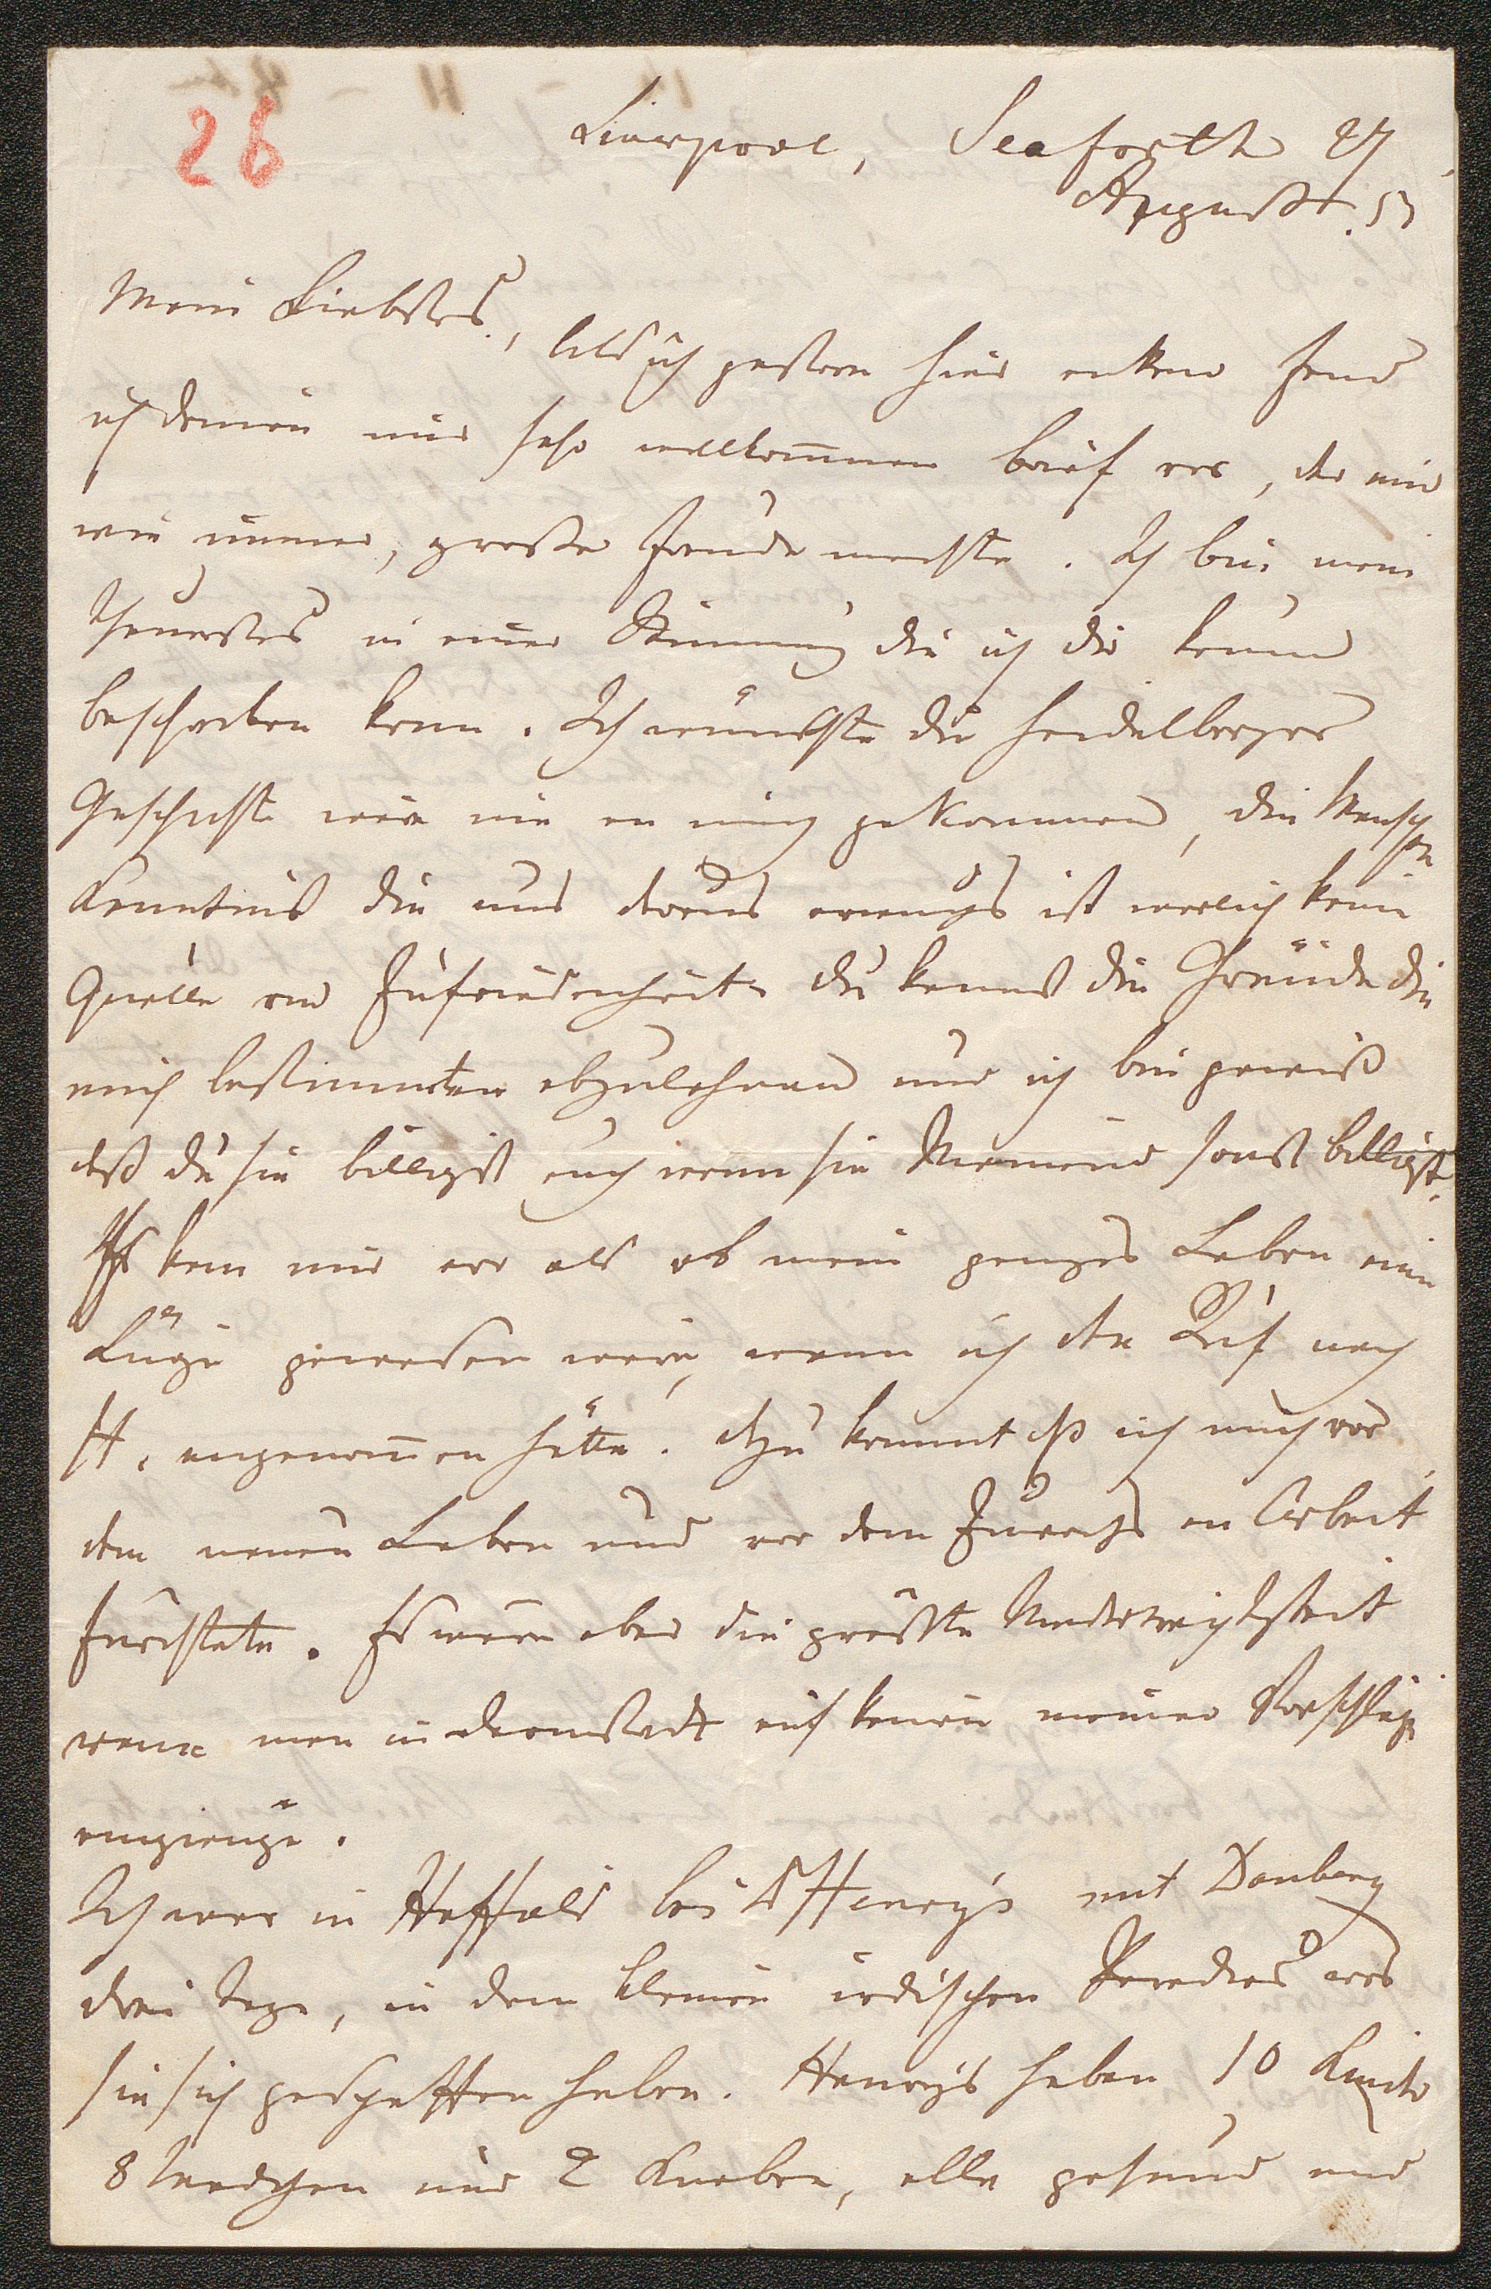 26
Liverpool, Seaforth 27
August. 51
Mein Liebstes,
Als ich gestern hier ankam fand
ich Deinen mir sehr willkommen Brief vor, der mir
wie immer, große Freude machte. Ich bin mein
Theuerstes in einer Stimmung die ich dir kaum
beschreiben kann. Ich wünschte die Heidelberger
Geschichte wäre nie an mich gekommen, die Menschen
Kenntniß die uns daraus erwuchs ist warlich keine
Quelle von Zufriedenheit. Du kennst die Gründe die
mich bestimmten abzulehnen und ich bin gewiß
daß du sie billigst auch wenn sie Niemand sonst billigt.
Es kam mir vor als ob mein ganzes Leben eine
Lüge gewesen wäre, wenn ich den Ruf nach
H. angenom̅en hätte. Dazu kommt daß ich mich vor
dem neuen Leben und vor dem Zuwachs an Arbeit
fürchtete. Es wäre aber die größte Niederträchtigkeit
wenn man in Darmstadt auf keinen meiner Vorschläge
eingienge.
Ich war in Haffield bei D Henry's mit Daubeny
drei Tage, in dem kleinen irdischen Paradies was
sie sich geschaffen haben. Henrys haben 10 Kinder
8 Maedchen und 2 Knaben, alle gesund und